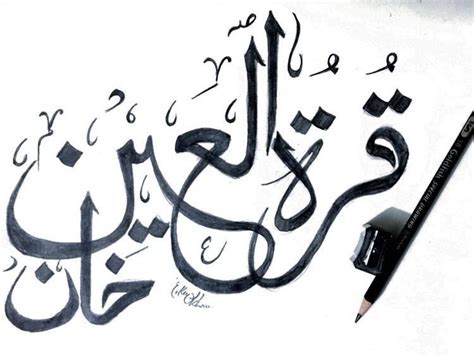 قرة العين
خان